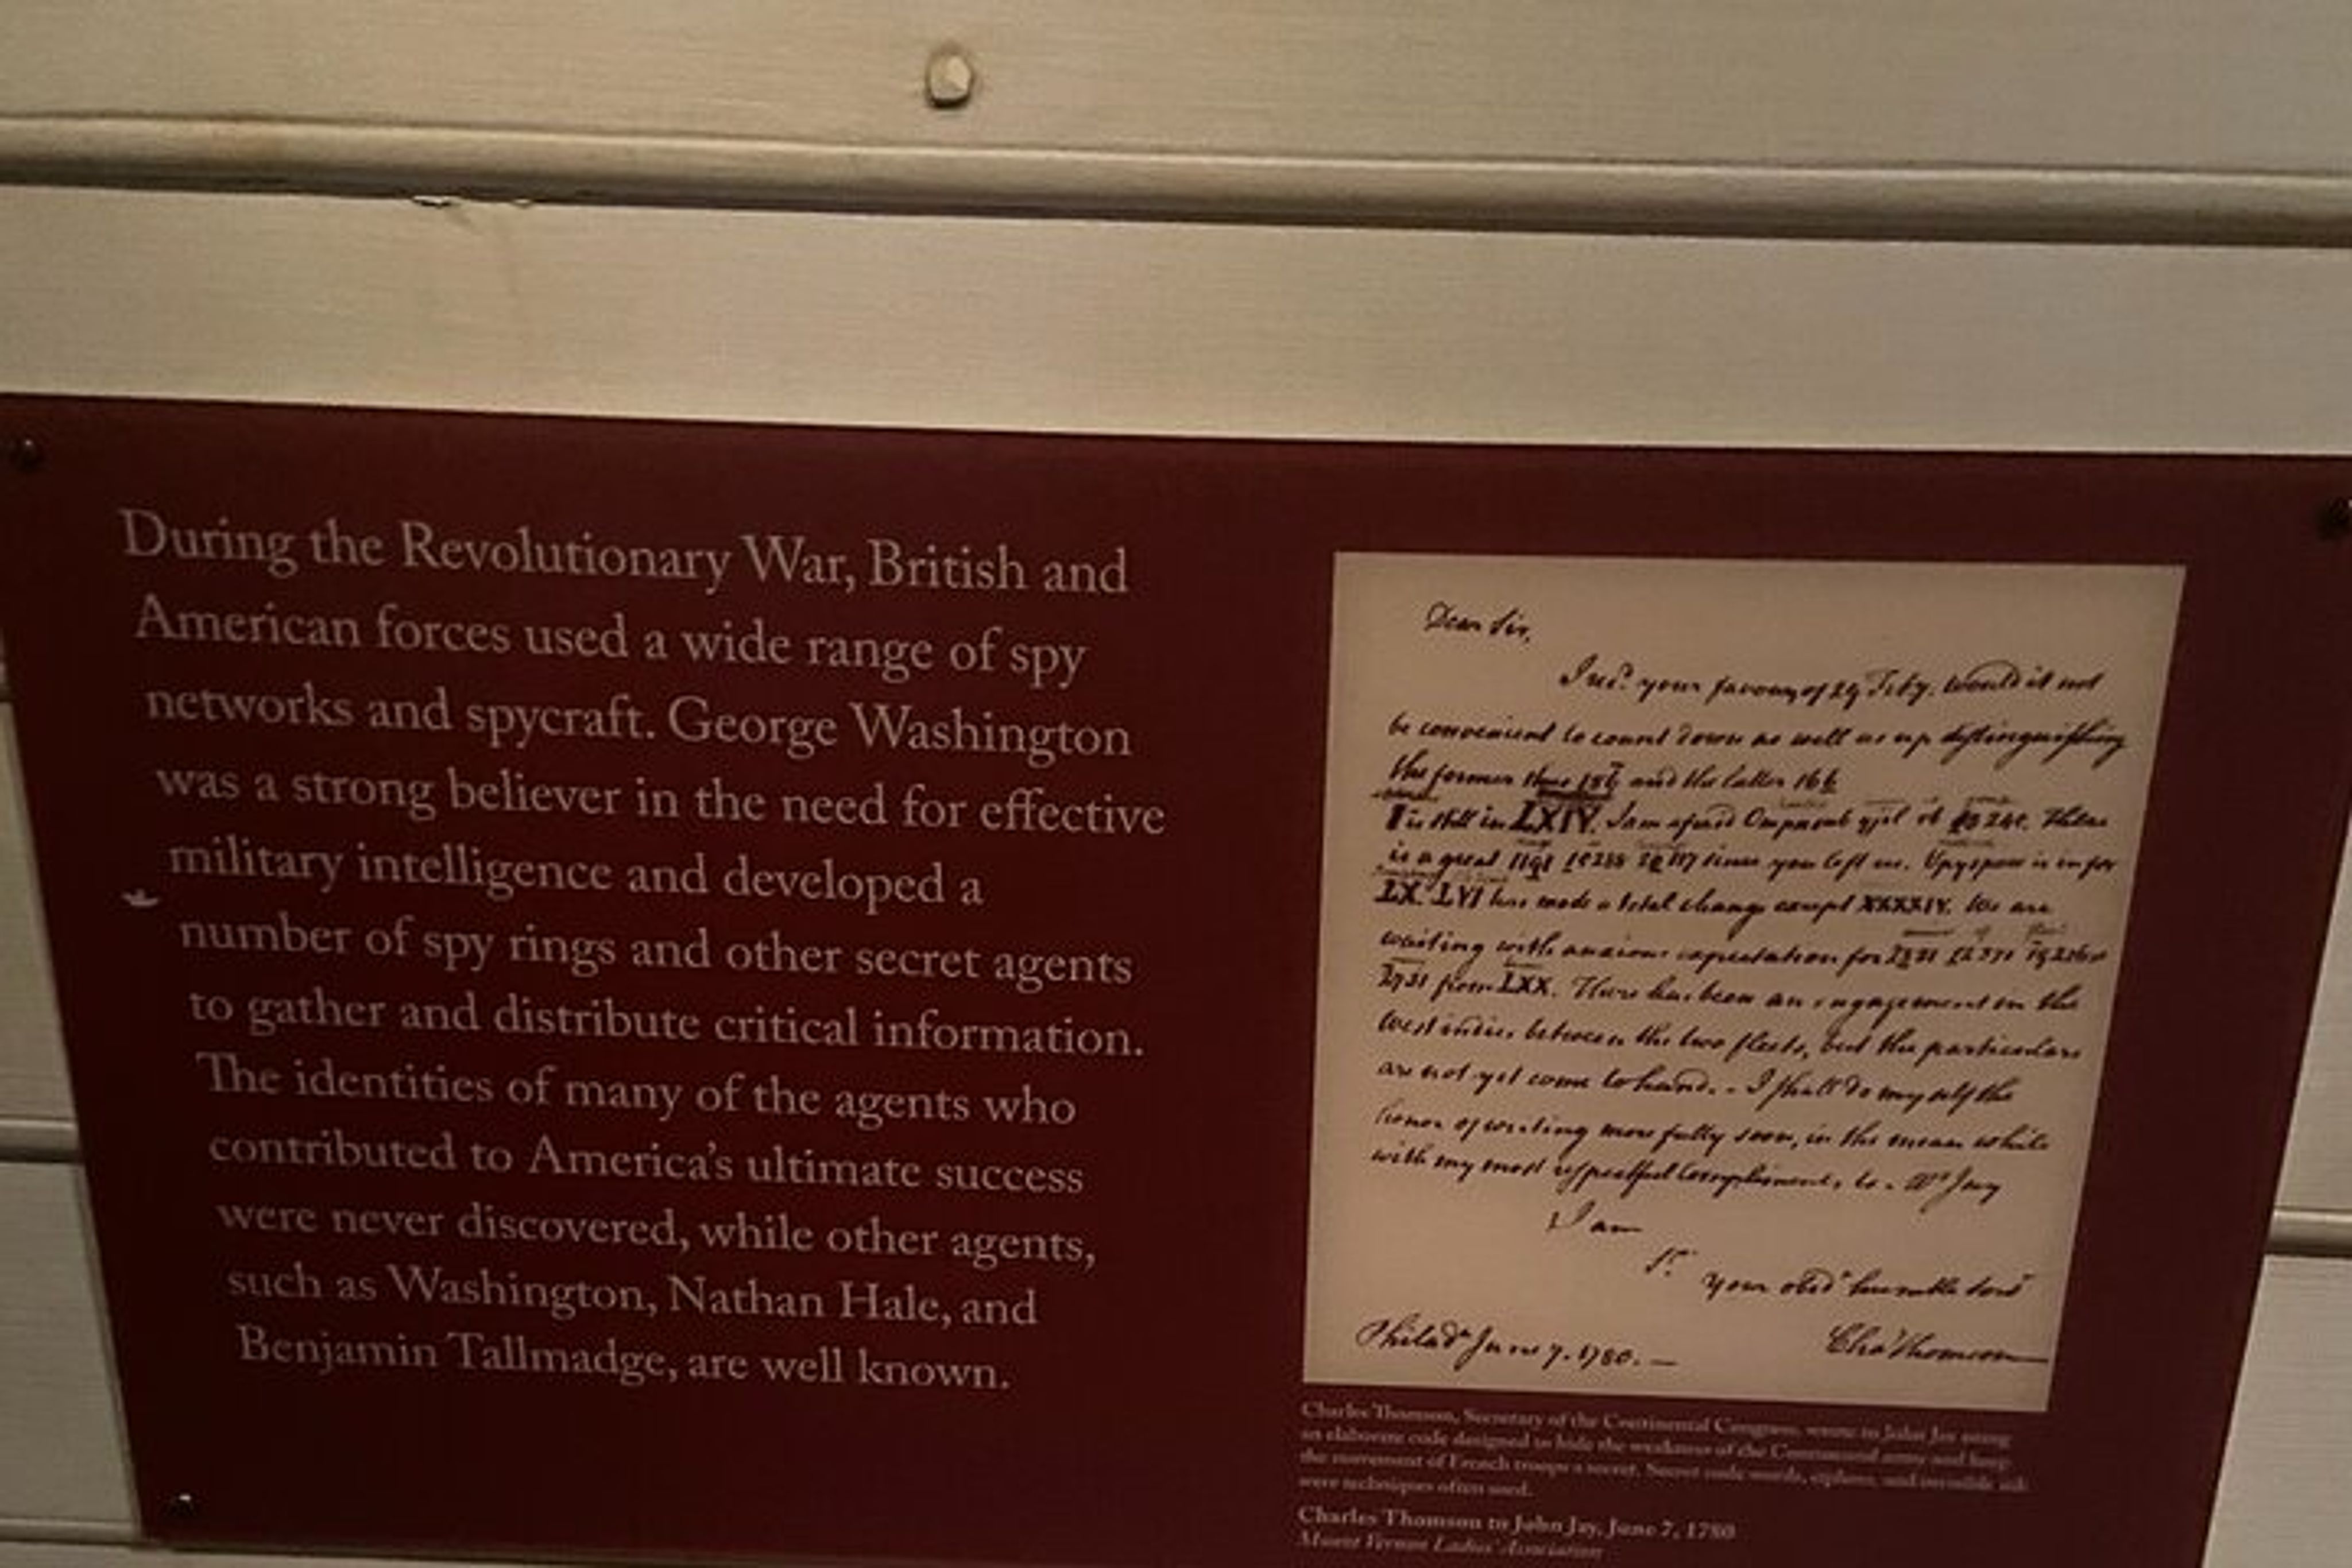 During the Revolutionary War, British and
American forces used a wide range of spy
networks and spycraft. George Washington
was a strong believer in the need for effective
military intelligence and developed a
number of spy rings and other secret agents
to gather and distribute critical information.
The identities of many of the agents who
contributed to America's ultimate success
were never discovered, while other agents,
such as Washington, Nathan Hale, and
Benjamin Tallmadge, are well known.
Dear Sir,
your favour of 29 would it not
be convenient to count down as well as up distinguishing
the former thus and the latter
I is still in LXIV. I am There
is a great since you left us. is
LX. LVI has made a total change except XXXXIV. We are
waiting with anxious expectation for
from LXX. There has been an engagement in the
West indies between the two fleets, but the particulars
are not yet come to hand. - I shall do myself the
honor of writing more fully soon, in the mean while
with my most respectful compliments to Jay
I am
Sr.
your obed.t humble
Philad.a June 7. 1780. —
Cha.s Thomson
Charles Thomson, Secretary of the Continental Congress, wrote to John Jay using
an elaborate code designed to hide the weakness of the Continental army and keep
the movement of French troops a secret. Secret code words, ciphers, and invisible ink
were techniques often used.
Charles Thomson to John Jay, June 7, 1780
Mount Vernon Ladies' Association